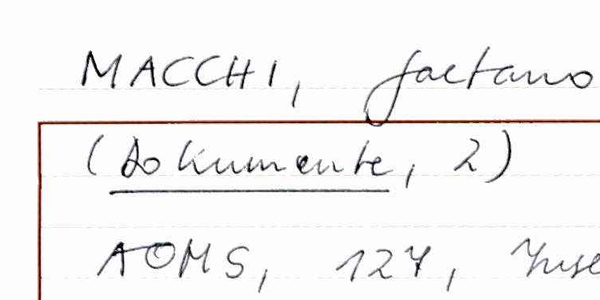 MACCHI, Gaetano
(Dokumente, 2)
AOMS, 127,